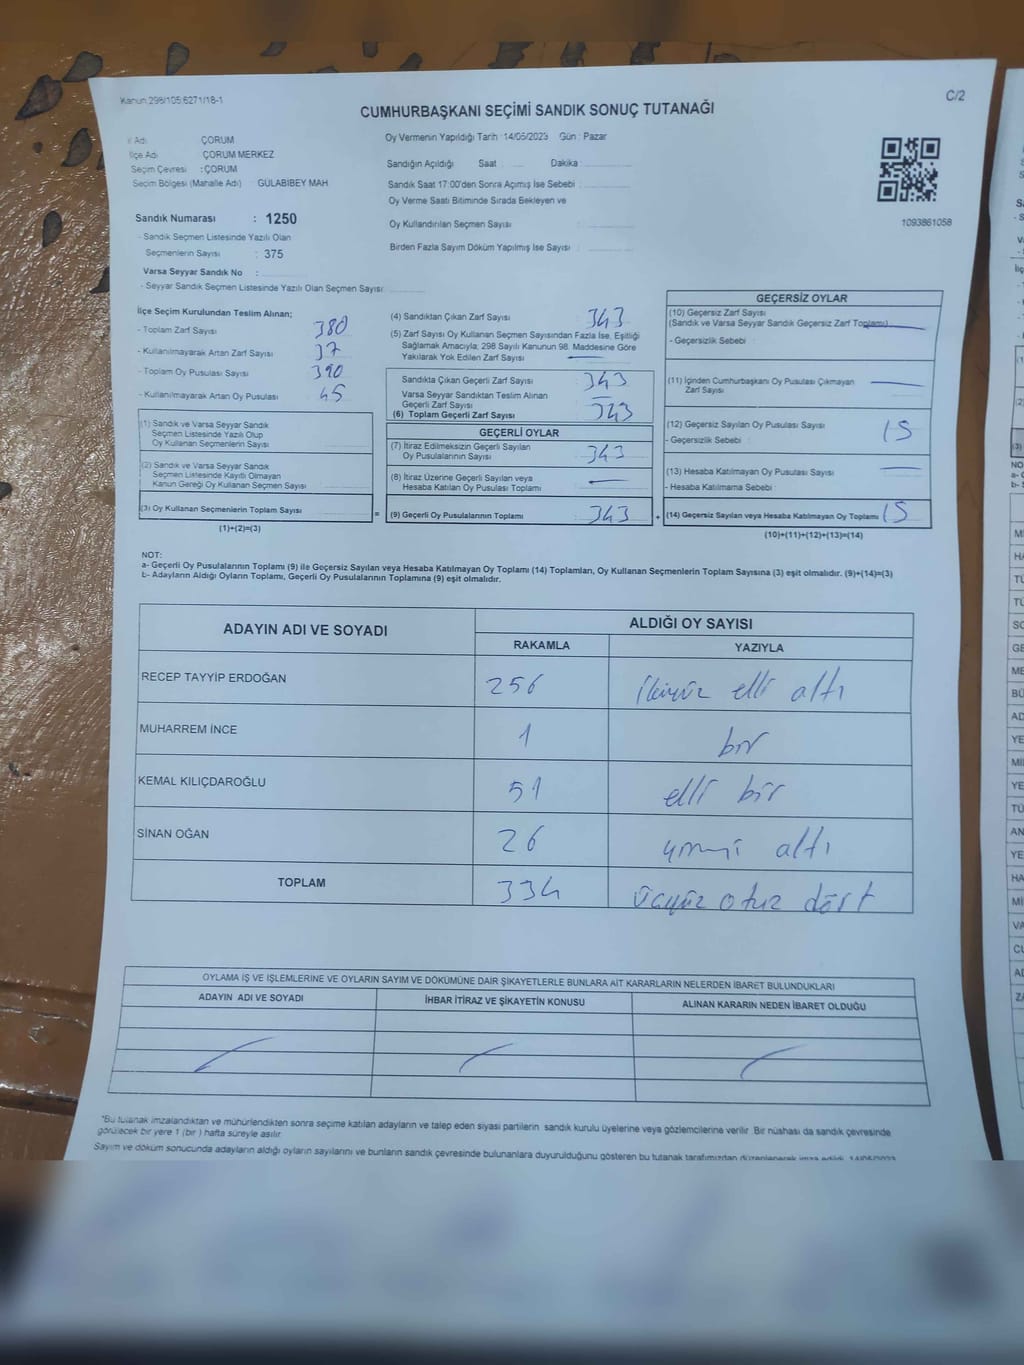 Kanun.298/105.6271/18-1
C/2
CUMHURBAŞKANI SEÇİMİ SANDIK SONUÇ TUTANAĞI
İl Adı ÇORUM
İlçe Adı ÇORUM MERKEZ
Seçim Çevresi : ÇORUM
Seçim Bölgesi (Mahalle Adı) GÜLABİBEY MAH
Sandık Numarası : 1250
- Sandık Seçmen Listesinde Yazılı Olan
Seçmenlerin Sayısı : 375
Varsa Seyyar Sandık No :
- Seyyar Sandık Seçmen Listesinde Yazılı Olan Seçmen Sayısı:
Oy Vermenin Yapıldığı Tarih : 14/05/2023 Gün : Pazar
Sandığın Açıldığı Saat Dakika
Sandık Saat 17:00'den Sonra Açılmış İse Sebebi :
Oy Verme Saati Bitiminde Sırada Bekleyen ve
Oy Kullandırılan Seçmen Sayısı :
Birden Fazla Sayım Döküm Yapılmış İse Sayısı :
1093861058
İlçe Seçim Kurulundan Teslim Alınan;
- Toplam Zarf Sayısı 380
- Kullanılmayarak Artan Zarf Sayısı 37
- Toplam Oy Pusulası Sayısı 390
- Kullanılmayarak Artan Oy Pusulası 45
(1) Sandık ve Varsa Seyyar Sandık
Seçmen Listesinde Yazılı Olup
Oy Kullanan Seçmenlerin Sayısı
(2) Sandık ve Varsa Seyyar Sandık
Seçmen Listesinde Kayıtlı Olmayan
Kanun Gereği Oy Kullanan Seçmen Sayısı
(3) Oy Kullanan Seçmenlerin Toplam Sayısı
(1)+(2)=(3)
=
(4) Sandıktan Çıkan Zarf Sayısı : 343
(5) Zarf Sayısı Oy Kullanan Seçmen Sayısından Fazla İse, Eşitliği
Sağlamak Amacıyla; 298 Sayılı Kanunun 98. Maddesine Göre
Yakılarak Yok Edilen Zarf Sayısı :
Sandıkta Çıkan Geçerli Zarf Sayısı : 343
Varsa Seyyar Sandıktan Teslim Alınan
Geçerli Zarf Sayısı :
(6) Toplam Geçerli Zarf Sayısı : 343
GEÇERLİ OYLAR
(7) İtiraz Edilmeksizin Geçerli Sayılan
Oy Pusulalarının Sayısı : 343
(8) İtiraz Üzerine Geçerli Sayılan veya
Hesaba Katılan Oy Pusulası Toplamı :
(9) Geçerli Oy Pusulalarının Toplamı : 343
+
GEÇERSİZ OYLAR
(10) Geçersiz Zarf Sayısı
(Sandık ve Varsa Seyyar Sandık Geçersiz Zarf Toplamı)
- Geçersizlik Sebebi :
(11) İçinden Cumhurbaşkanı Oy Pusulası Çıkmayan
Zarf Sayısı :
(12) Geçersiz Sayılan Oy Pusulası Sayısı : 15
- Geçersizlik Sebebi :
(13) Hesaba Katılmayan Oy Pusulası Sayısı :
- Hesaba Katılmama Sebebi :
(14) Geçersiz Sayılan veya Hesaba Katılmayan Oy Toplamı : 15
(10)+(11)+(12)+(13)=(14)
NOT:
a- Geçerli Oy Pusulalarının Toplamı (9) ile Geçersiz Sayılan veya Hesaba Katılmayan Oy Toplamı (14) Toplamları, Oy Kullanan Seçmenlerin Toplam Sayısına (3) eşit olmalıdır. (9)+(14)=(3)
b- Adayların Aldığı Oyların Toplamı, Geçerli Oy Pusulalarının Toplamına (9) eşit olmalıdır.
ADAYIN ADI VE SOYADI ALDIĞI OY SAYISI
RAKAMLA YAZIYLA
RECEP TAYYİP ERDOĞAN 256 ikiyüz elli altı
MUHARREM İNCE 1 bir
KEMAL KILIÇDAROĞLU 51 elli bir
SİNAN OĞAN 26 yirmi altı
TOPLAM 334 üçyüz otuz dört
OYLAMA İŞ VE İŞLEMLERİNE VE OYLARIN SAYIM VE DÖKÜMÜNE DAİR ŞİKAYETLERLE BUNLARA AİT KARARLARIN NELERDEN İBARET BULUNDUKLARI
ADAYIN ADI VE SOYADI İHBAR İTİRAZ VE ŞİKAYETİN KONUSU ALINAN KARARIN NEDEN İBARET OLDUĞU
"Bu tutanak imzalandıktan ve mühürlendikten sonra seçime katılan adayların ve talep eden siyasi partilerin sandık kurulu üyelerine veya gözlemcilerine verilir. Bir nüshası da sandık çevresinde
görülecek bir yere 1 (bir) hafta süreyle asılır.
Sayım ve döküm sonucunda adayların aldığı oyların sayılarını ve bunların sandık çevresinde bulunanlara duyurulduğunu gösteren bu tutanak tarafımızdan düzenlenerek imza edildi. 14/05/2023